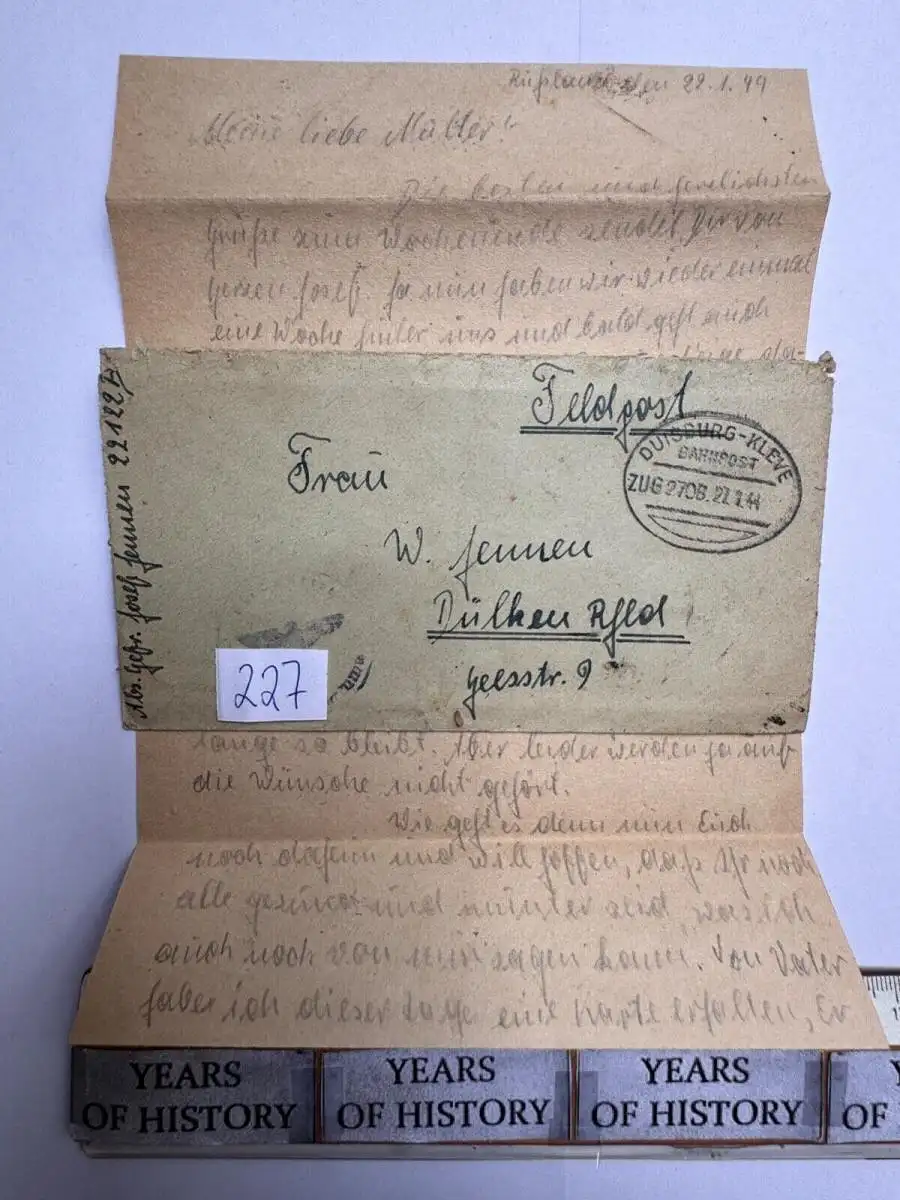 Rußland, den 22.1.44
Meine liebe Mutter!
Die besten und herzlichsten
Grüße zum Wochenende sendet Dir von
Herzen Josef. Ja nun haben wir wieder einmal
eine Woche hinter uns und bald geht auch
Feldpost
DUISBURG-KLEVE
BAHNPOST
ZUG 2708 27.1.44
Frau
W. Jennen
Dülken Rhld
Heesstr. 9
Abs. Gefr. Josef Jennen 22122
227
lange so bleibt. Aber leider werden ja auf
die Wünsche nicht gehört.
Wie geht es denn nun Euch
noch daheim und will hoffen, daß Ihr noch
alle gesund und munter seid, was ich
auch noch von mir sagen kann. Von Vater
habe ich dieser Tage eine Karte erhalten, Er
YEARS OF HISTORY
YEARS OF HISTORY
YEARS OF HISTORY
Y
OF